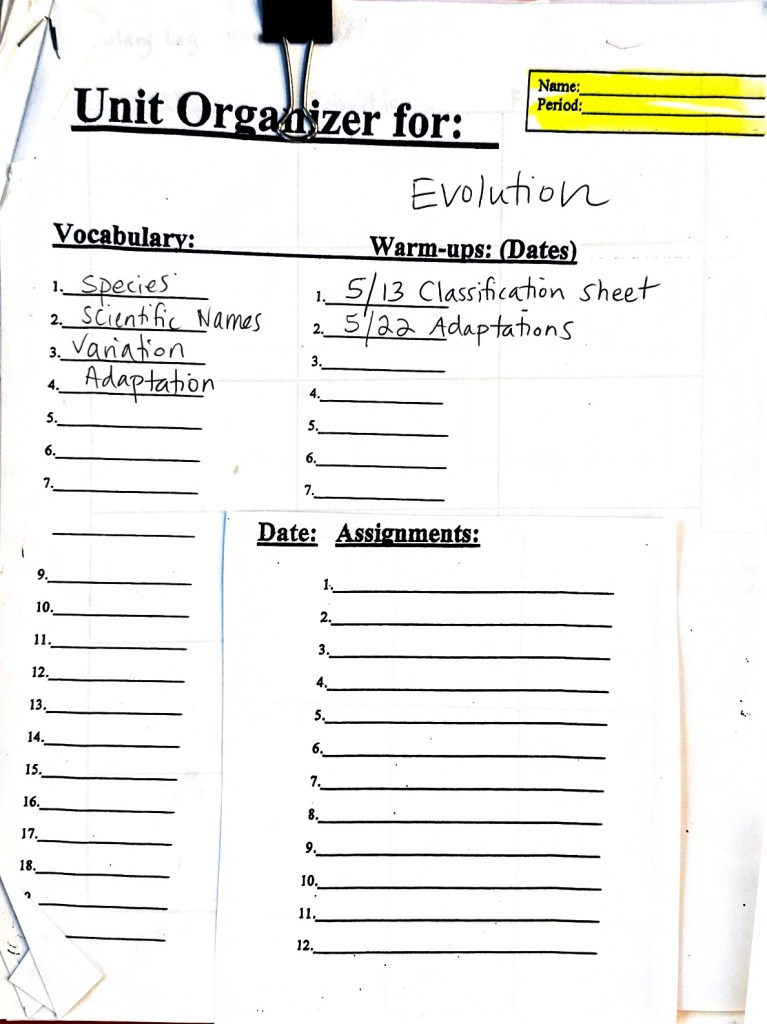 Unit Organizer for:
Name:
Period:
Evolution
Vocabulary:
1. Species
2. Scientific Names
3. Variation
4. Adaptation
5.
6.
7.
9.
10.
11.
12.
13.
14.
15.
16.
17.
18.
Warm-ups: (Dates)
1. 5/13 Classification sheet
2. 5/22 Adaptations
3.
4.
5.
6.
7.
Date: Assignments:
1.
2.
3.
4.
5.
6.
7.
8.
9.
10.
11.
12.